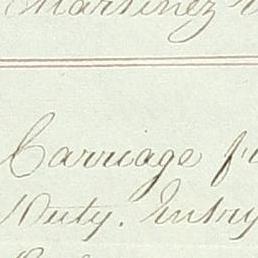 Martinez
Carriage
Duty. Entry